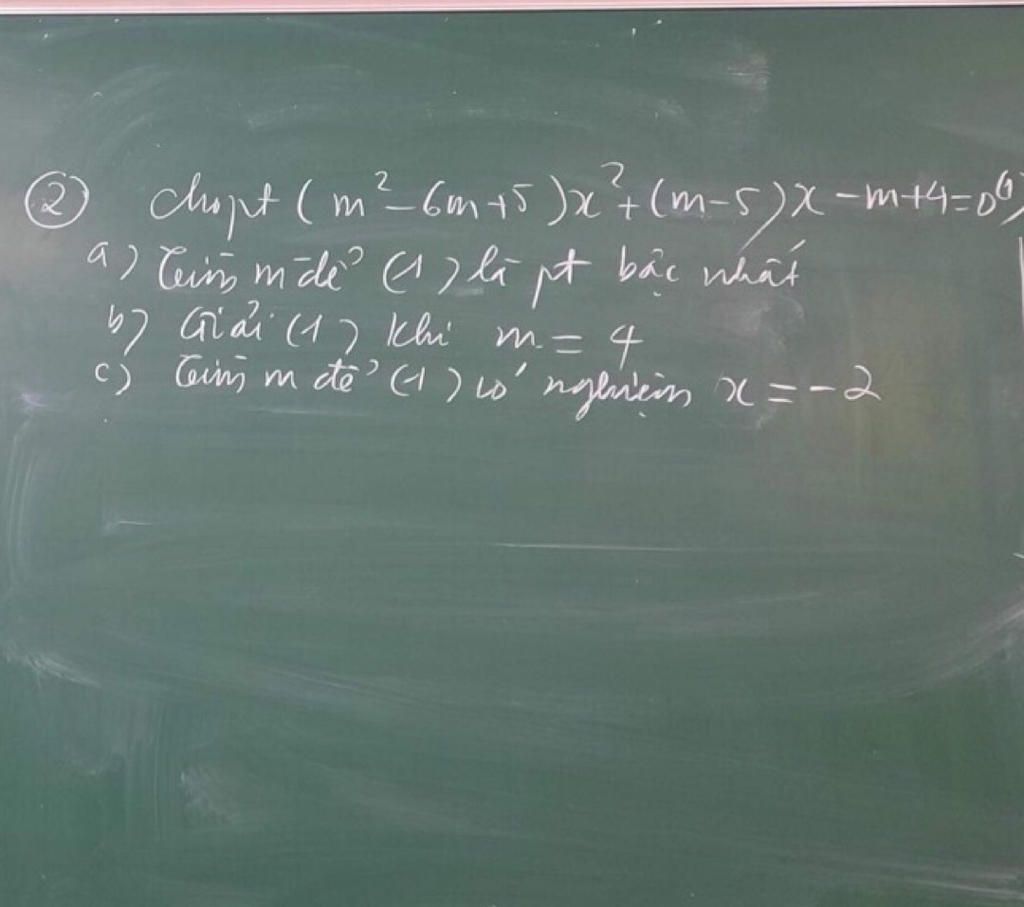 ② Cho pt (m² - 6m + 5)x² + (m - 5)x - m + 4 = 0 (1)
a) Tìm m để (1) là pt bậc nhất
b) Giải (1) khi m = 4
c) Tìm m để (1) có nghiệm x = -2